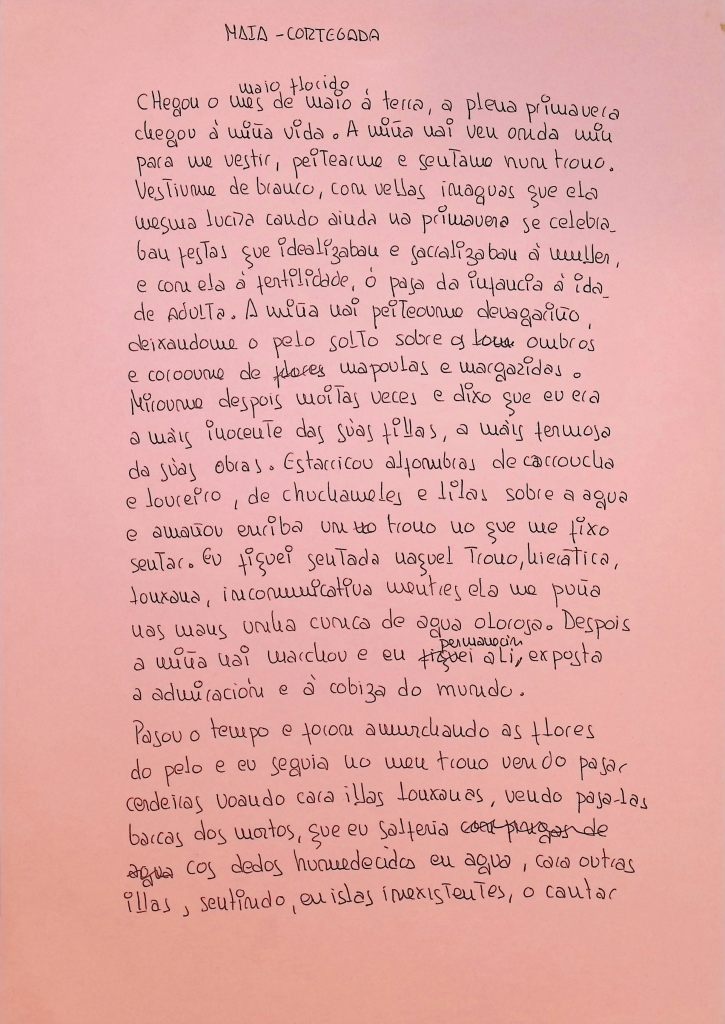 MAIA - CORTEGADA
maio florido
CHegou o mes de maio á terra, a plena primavera
chegou á miña vida. A miña nai veu onda min
para me vestir, peitearme e sentarme nun trono.
Vestiume de branco, con vellas inaguas que ela
mesma lucira cando aínda na primavera se celebra_
ban festas que idealizaban e sacralizaban á muller,
e con ela á fertilidade, ó paso da infancia á ida_
de ADULTA. A miña nai peiteoume devagariño,
deixandome o pelo solto sobre os ombros
e corooume de flores mapoulas e margaridas.
Miroume despois moitas veces e dixo que eu era
a máis inocente das súas fillas, a máis fermosa
da súas obras. Estarricou alfombras de carroucha
e loureiro, de chuchameles e lilas sobre a agua
e amañou enriba un trono no que me fixo
sentar. Eu fiquei sentada naquel Trono, hierática,
louxana, incomunicativa mentres ela me puña
nas mans unha cunca de agua olorosa. Despois
permanecín
a miña nai marchou e eu fiquei alí, exposta
a admiración e á cobiza do mundo.
Pasou o tempo e foron amurchando as flores
do pelo e eu seguia no meu trono vendo pasar
cerdeiras voando cara illas louxanas, vendo pasa-las
barcas dos mortos, que eu salferia con pingas de
agua cos dedos humedecidos en agua, cara outras
illas, sentindo, en islas inexistentes, o cantar